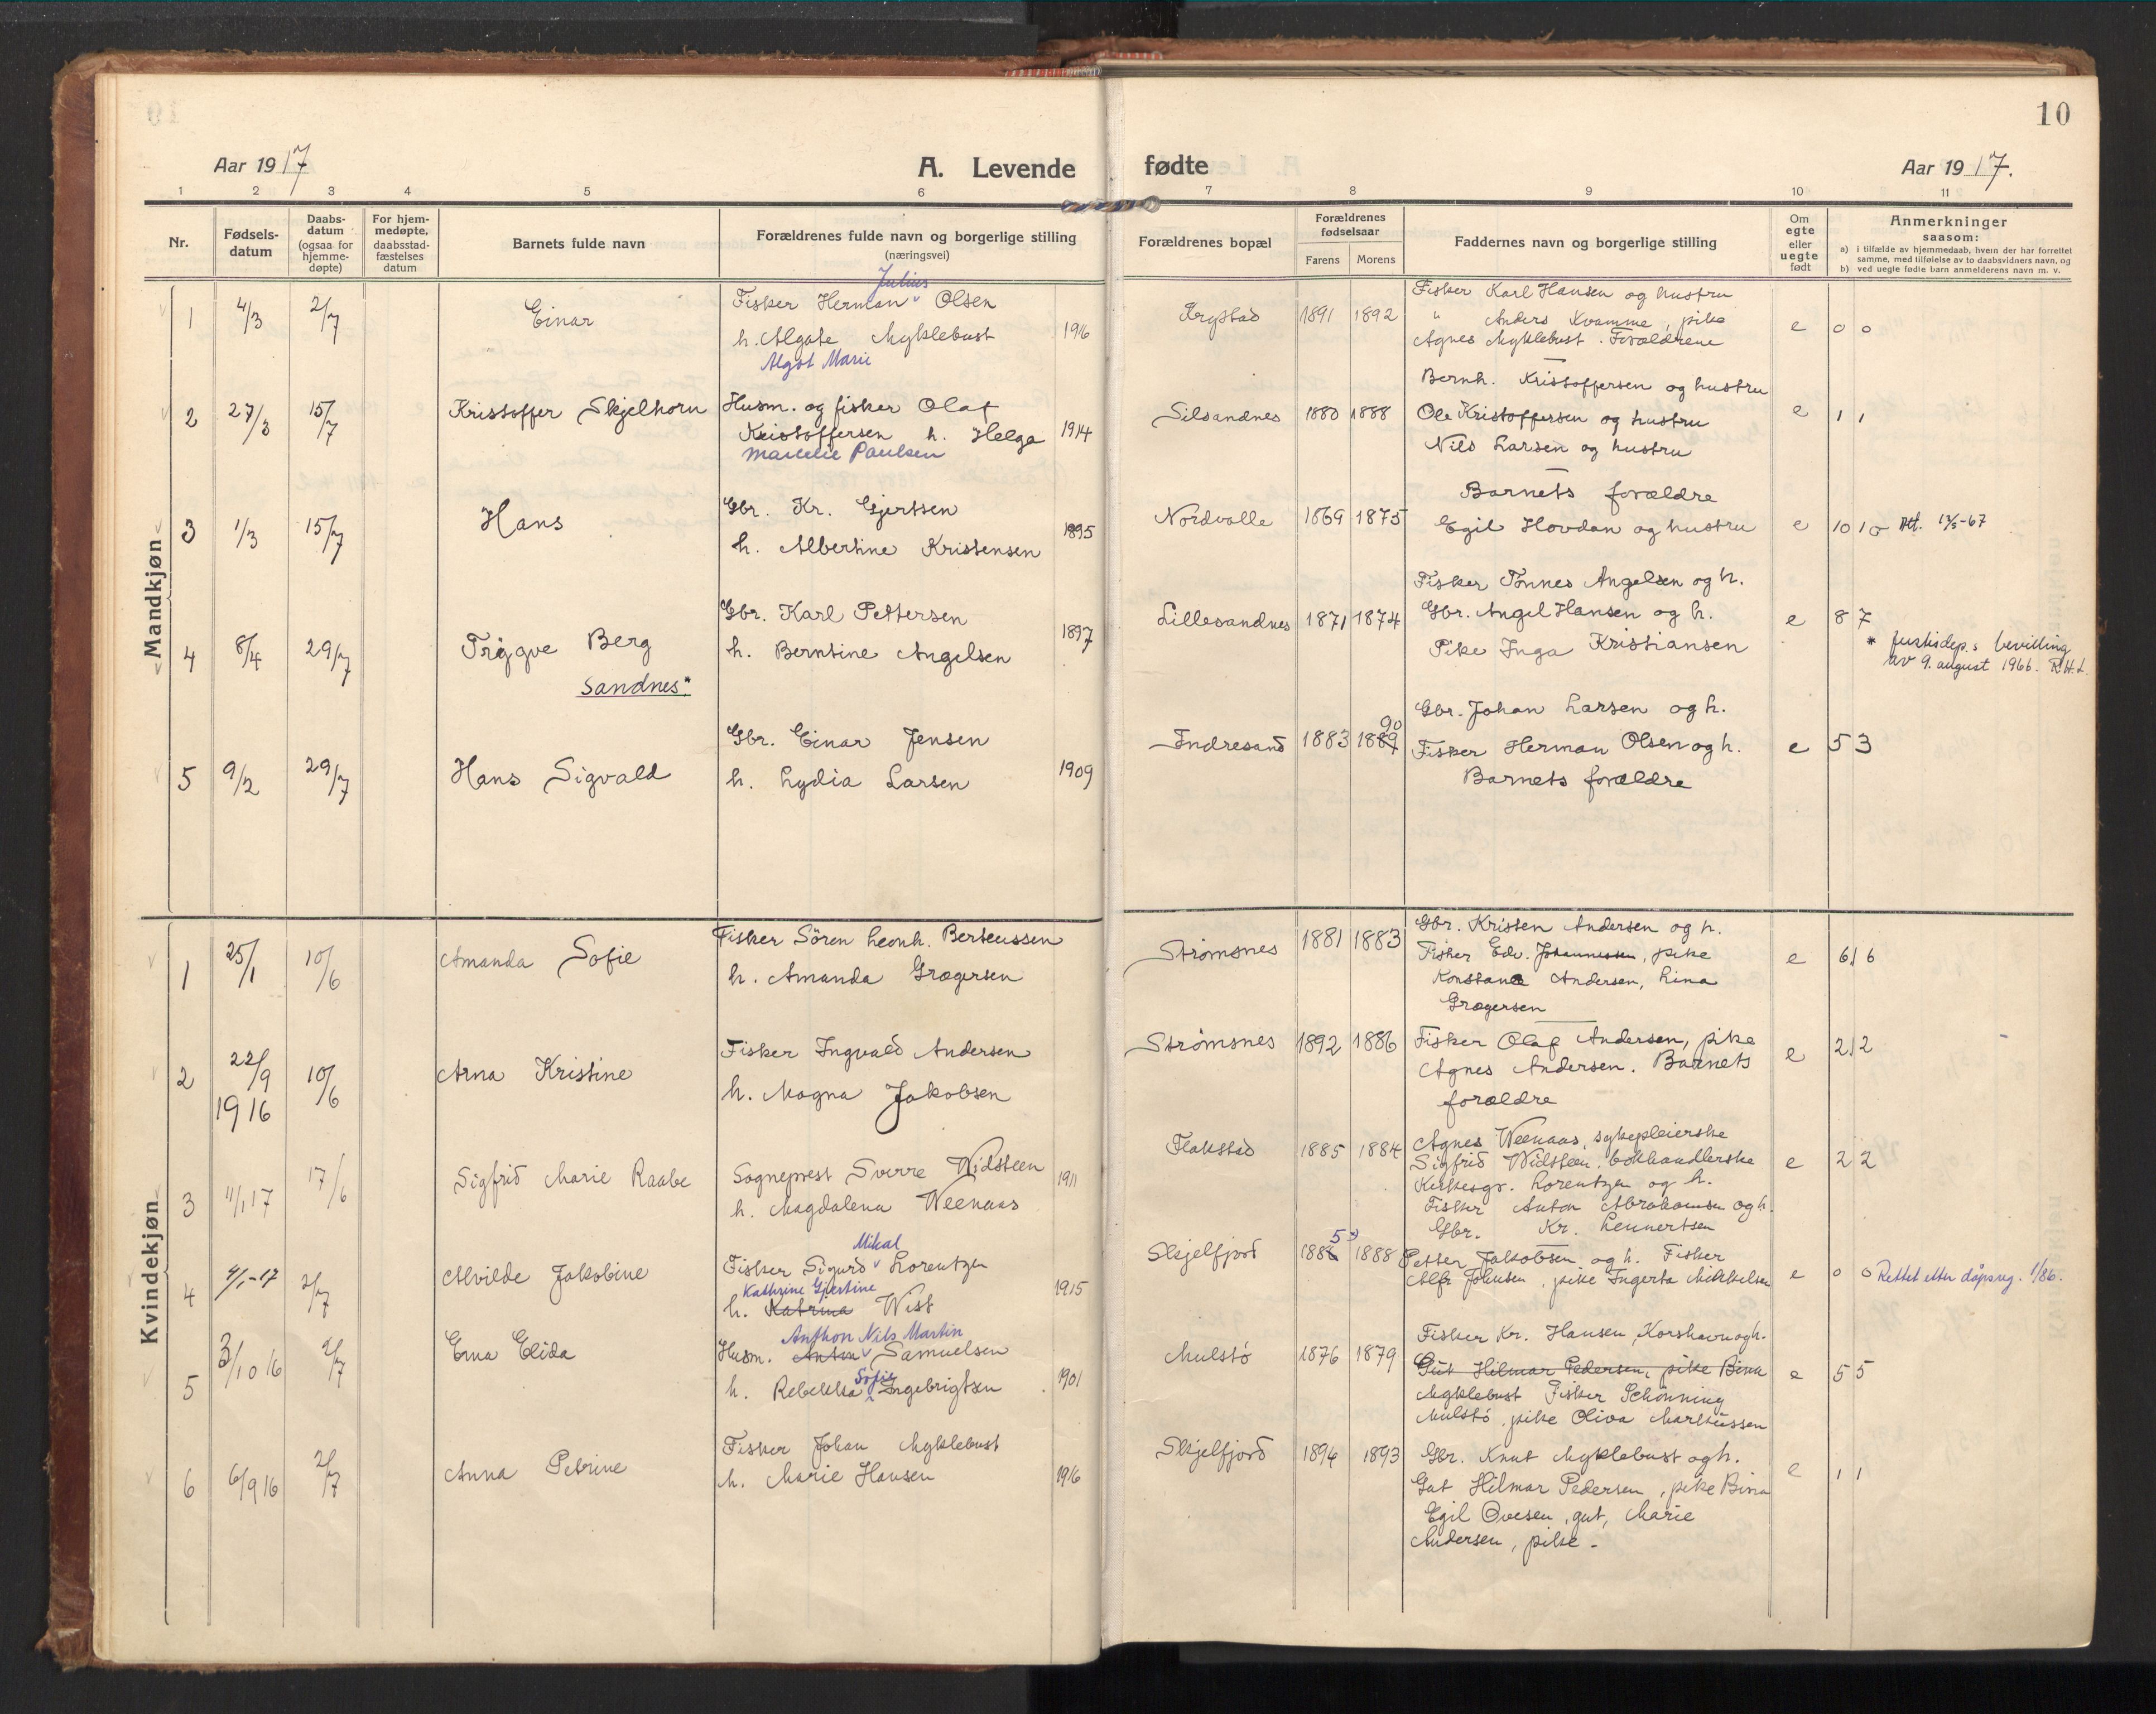 10
Aar 1917
A. Levende fødte
Aar 1917.
1 2 3 4 5 6 7 8 9 10 11
Nr.
Fødsels-
datum
Daabs-
datum
(ogsaa for
hjemme-
døpte)
For hjem-
medøpte,
daabsstad-
fæstelses
datum
Barnets fulde navn
Forældrenes fulde navn og borgerlige stilling
(næringsvei)
Forældrenes bopæl
Forældrenes
fødselsaar
Farens Morens
Faddernes navn og borgerlige stilling
Om
egte
eller
uegte
født
Anmerkninger
saasom:
a) i tilfælde av hjemmedaab, hvem der har forrettet
samme, med tilføielse av to daabsvidners navn, og
b) ved uegte fødte barn anmelderens navn m. v.
Mandkjøn
1 4/3 2/7 Einar
Julius
Fisker Herman Olsen
h. Algate Myklebust 1916
Algot Marie
Krystad 1891 1892
Fisker Karl Hansen og hustru
" Anders Kvamme, pike
Agnes Myklebust. Forældrene
e 0 0
2 27/3 15/7 Kristoffer Skjelhorn
Husm. og fisker Olaf
Kristoffersen h. Helga 1914
Marcelie Paulsen
Silsandnes 1880 1888
Bernh. Kristoffersen og hustru
Ole Kristoffersen og hustru
Nils Larsen og hustru
e 1 1
3 1/3 15/7 Hans
Gbr. Kr. Gjertsen
h. Albertine Kristensen 1895
Nordvalle 1869 1875
Barnets forældre
Egil Hovdan og hustru
e 10 10 Att. -67
4 8/4 29/7 Trygve Berg
Sandnes*
Gbr. Karl Pettersen
h. Berntine Angelsen 1897
Lillesandnes 1871 1874
Fisker Tønnes Angelsen og h.
Gbr. Angel Hansen og h.
Pike Inga Kristiansen
e 8 7
* Justisdep.s bevilling
av 9. august 1966. R.H.L.
5 9/2 29/7 Hans Sigvald
Gbr. Einar Jensen
h. Lydia Larsen 1909
Indresand 1883 1889 90
Gbr. Johan Larsen og h.
Fisker Herman Olsen og h.
Barnets forældre
e 5 3
Kvindekjøn
1 25/1 10/6 Amanda Sofie
Fisker Sören Leonh. Berteussen
h. Amanda Grøgersen
Strømsnes 1881 1883
Gbr. Kristen Andersen og h.
Fisker Edv. Johannessen, pike
Konstanse Andersen, Lina
Grøgersen
e 6 6
2 22/9 1916 10/6 Arna Kristine
Fisker Ingvald Andersen
h. Magna Jakobsen
Strømsnes 1892 1886
Fisker Olaf Andersen, pike
Agnes Andersen. Barnets
forældre
e 2 2 -
3 4/1 17 17/6 Sigfrid Marie Raabe
Sogneprest Sverre Widsteen
h. Magdalena Weenaas 1911
Flakstad 1885 1884
Agnes Weenaas, sykepleierske
Sigfrid Widsteen, bokhandlerske
Kirkesgr. Lorentzen og h.
Fisker Anton Abrahamsen og h.
Gbr. Kr. Lennertsen
e 2 2
4 4/1-17 2/7 Alvilde Jakobine
Mikal
Fisker Sigurd Lorentzen
Kathrine Gjertine
h. Katrina Wist 1915
Skjelfjord 1886 5 1888
Petter Jakobsen og h. Fisker
Alfr. Johnsen, pike Ingerta Mikkelsen
e 0 0 Rettet etter dåpsreg. 1/86.
5 3/10 16 2/7 Erna Elida
Anthon Nils Martin
Husm. Anton Samuelsen
Sofie
h. Rebekka Ingebrigtsen 1901
Mulstö 1876 1879
Fisker Kr. Hansen, Korshavn og h.
Gut Hilmar Pedersen, pike Bina
Myklebust Fisker Schönning
Mulstö, pike Oliva Markussen
e 5 5
6 6/9 16 2/7 Anna Petrine
Fisker Johan Myklebust
h. Marie Hansen 1916
Skjelfjord 1894 1893
Gbr. Knut Myklebust og h.
Gut Hilmar Pedersen, pike Bina
Egil Ovesen, gut, Marie
Andersen, pike -
e 1 1